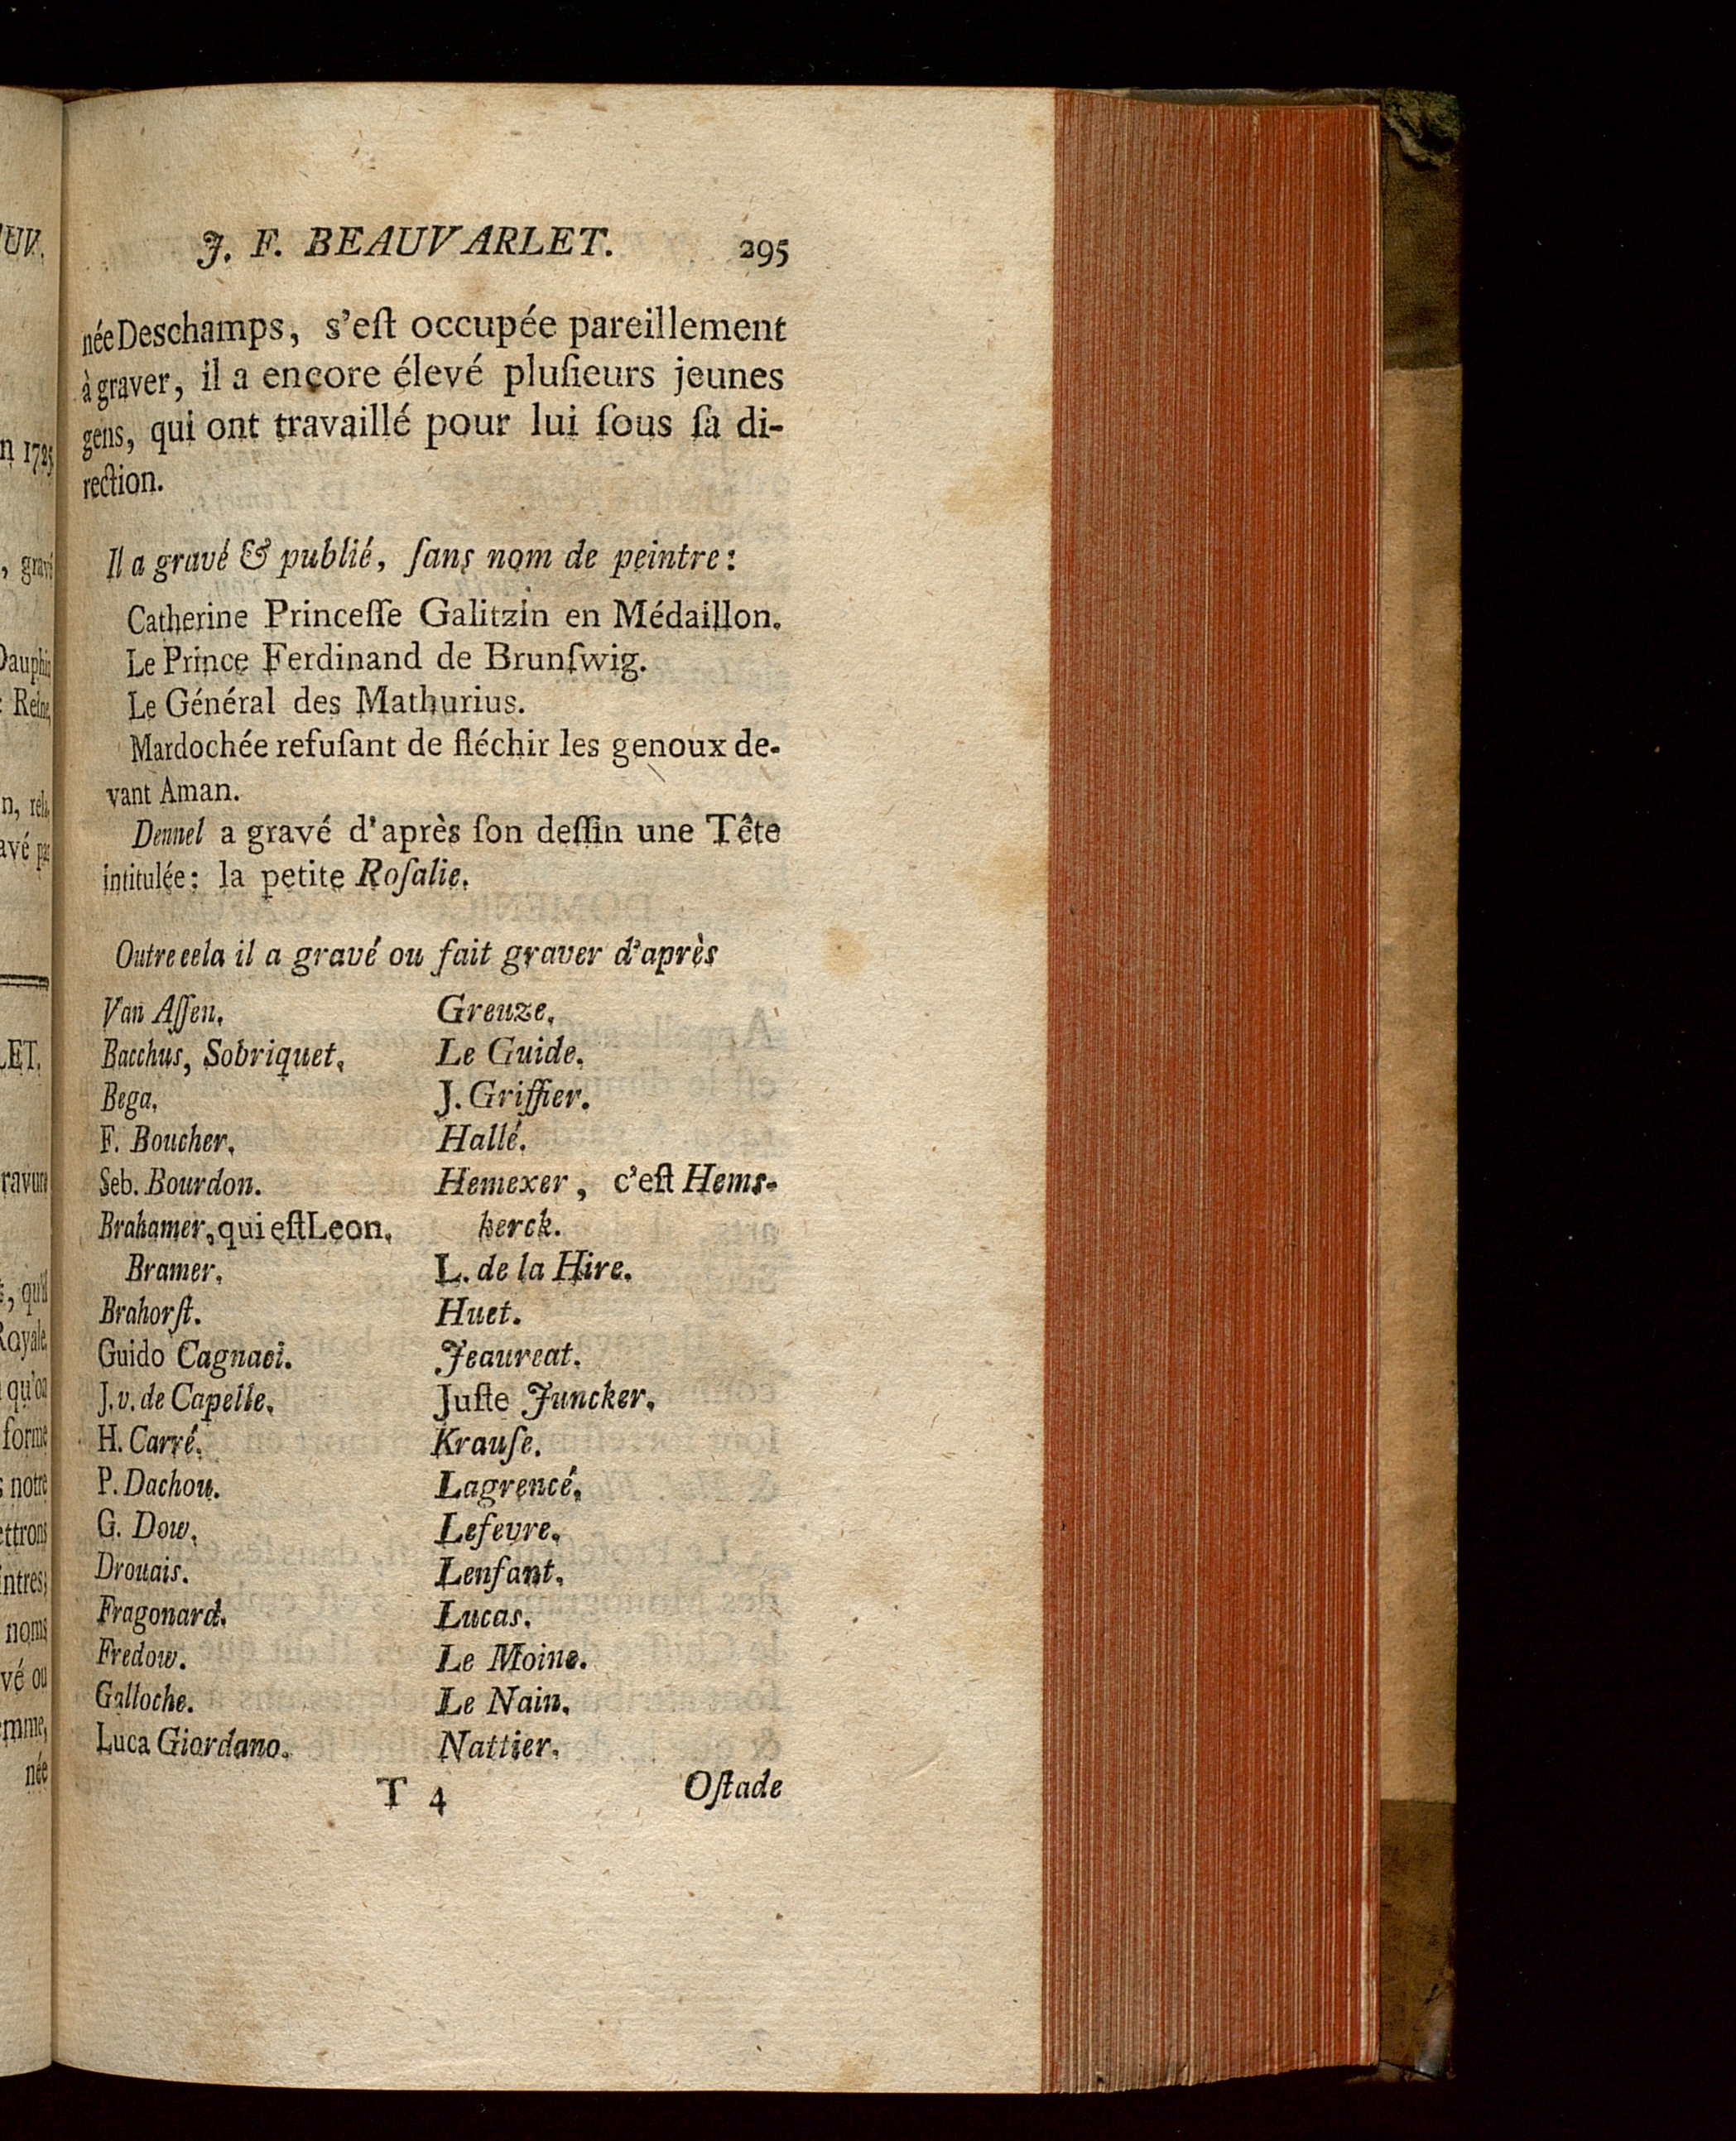 J. F. BEAUVARLET. 295
née Deschamps, s'eſt occupée pareillement
à graver, il a encore élevé pluſieurs jeunes
gens, qui ont travaillé pour lui ſous ſa di-
rection.
Il a gravé & publié, ſans nom de peintre:
Catherine Princeſſe Galitzin en Médaillon.
Le Prince Ferdinand de Brunſwig.
Le Général des Mathurius.
Mardochée refuſant de fléchir les genoux de-
vant Aman.
Dennel a gravé d'après ſon deſſin une Tête
intitulée: la petite Roſalie.
Outre cela il a gravé ou fait graver d'après
Van Aſſen.
Bacchus, Sobriquet.
Bega.
F. Boucher.
Seb. Bourdon.
Brahamer, qui eſt Leon.
Bramer.
Brahorſt.
Guido Cagnaci.
J. v. de Capelle.
H. Carré.
P. Dachou.
G. Dow.
Drouais.
Fragonard.
Fredow.
Galloche.
Luca Giordano.
Greuze.
Le Guide.
J. Griffier.
Hallé.
Hemexer, c'eſt Hems-
kerck.
L. de la Hire.
Huet.
Jeaureat.
Juſte Juncker.
Krauſe.
Lagrencé.
Lefevre.
Lenfant.
Lucas.
Le Moine.
Le Nain.
Nattier.
T 4 Oſtade